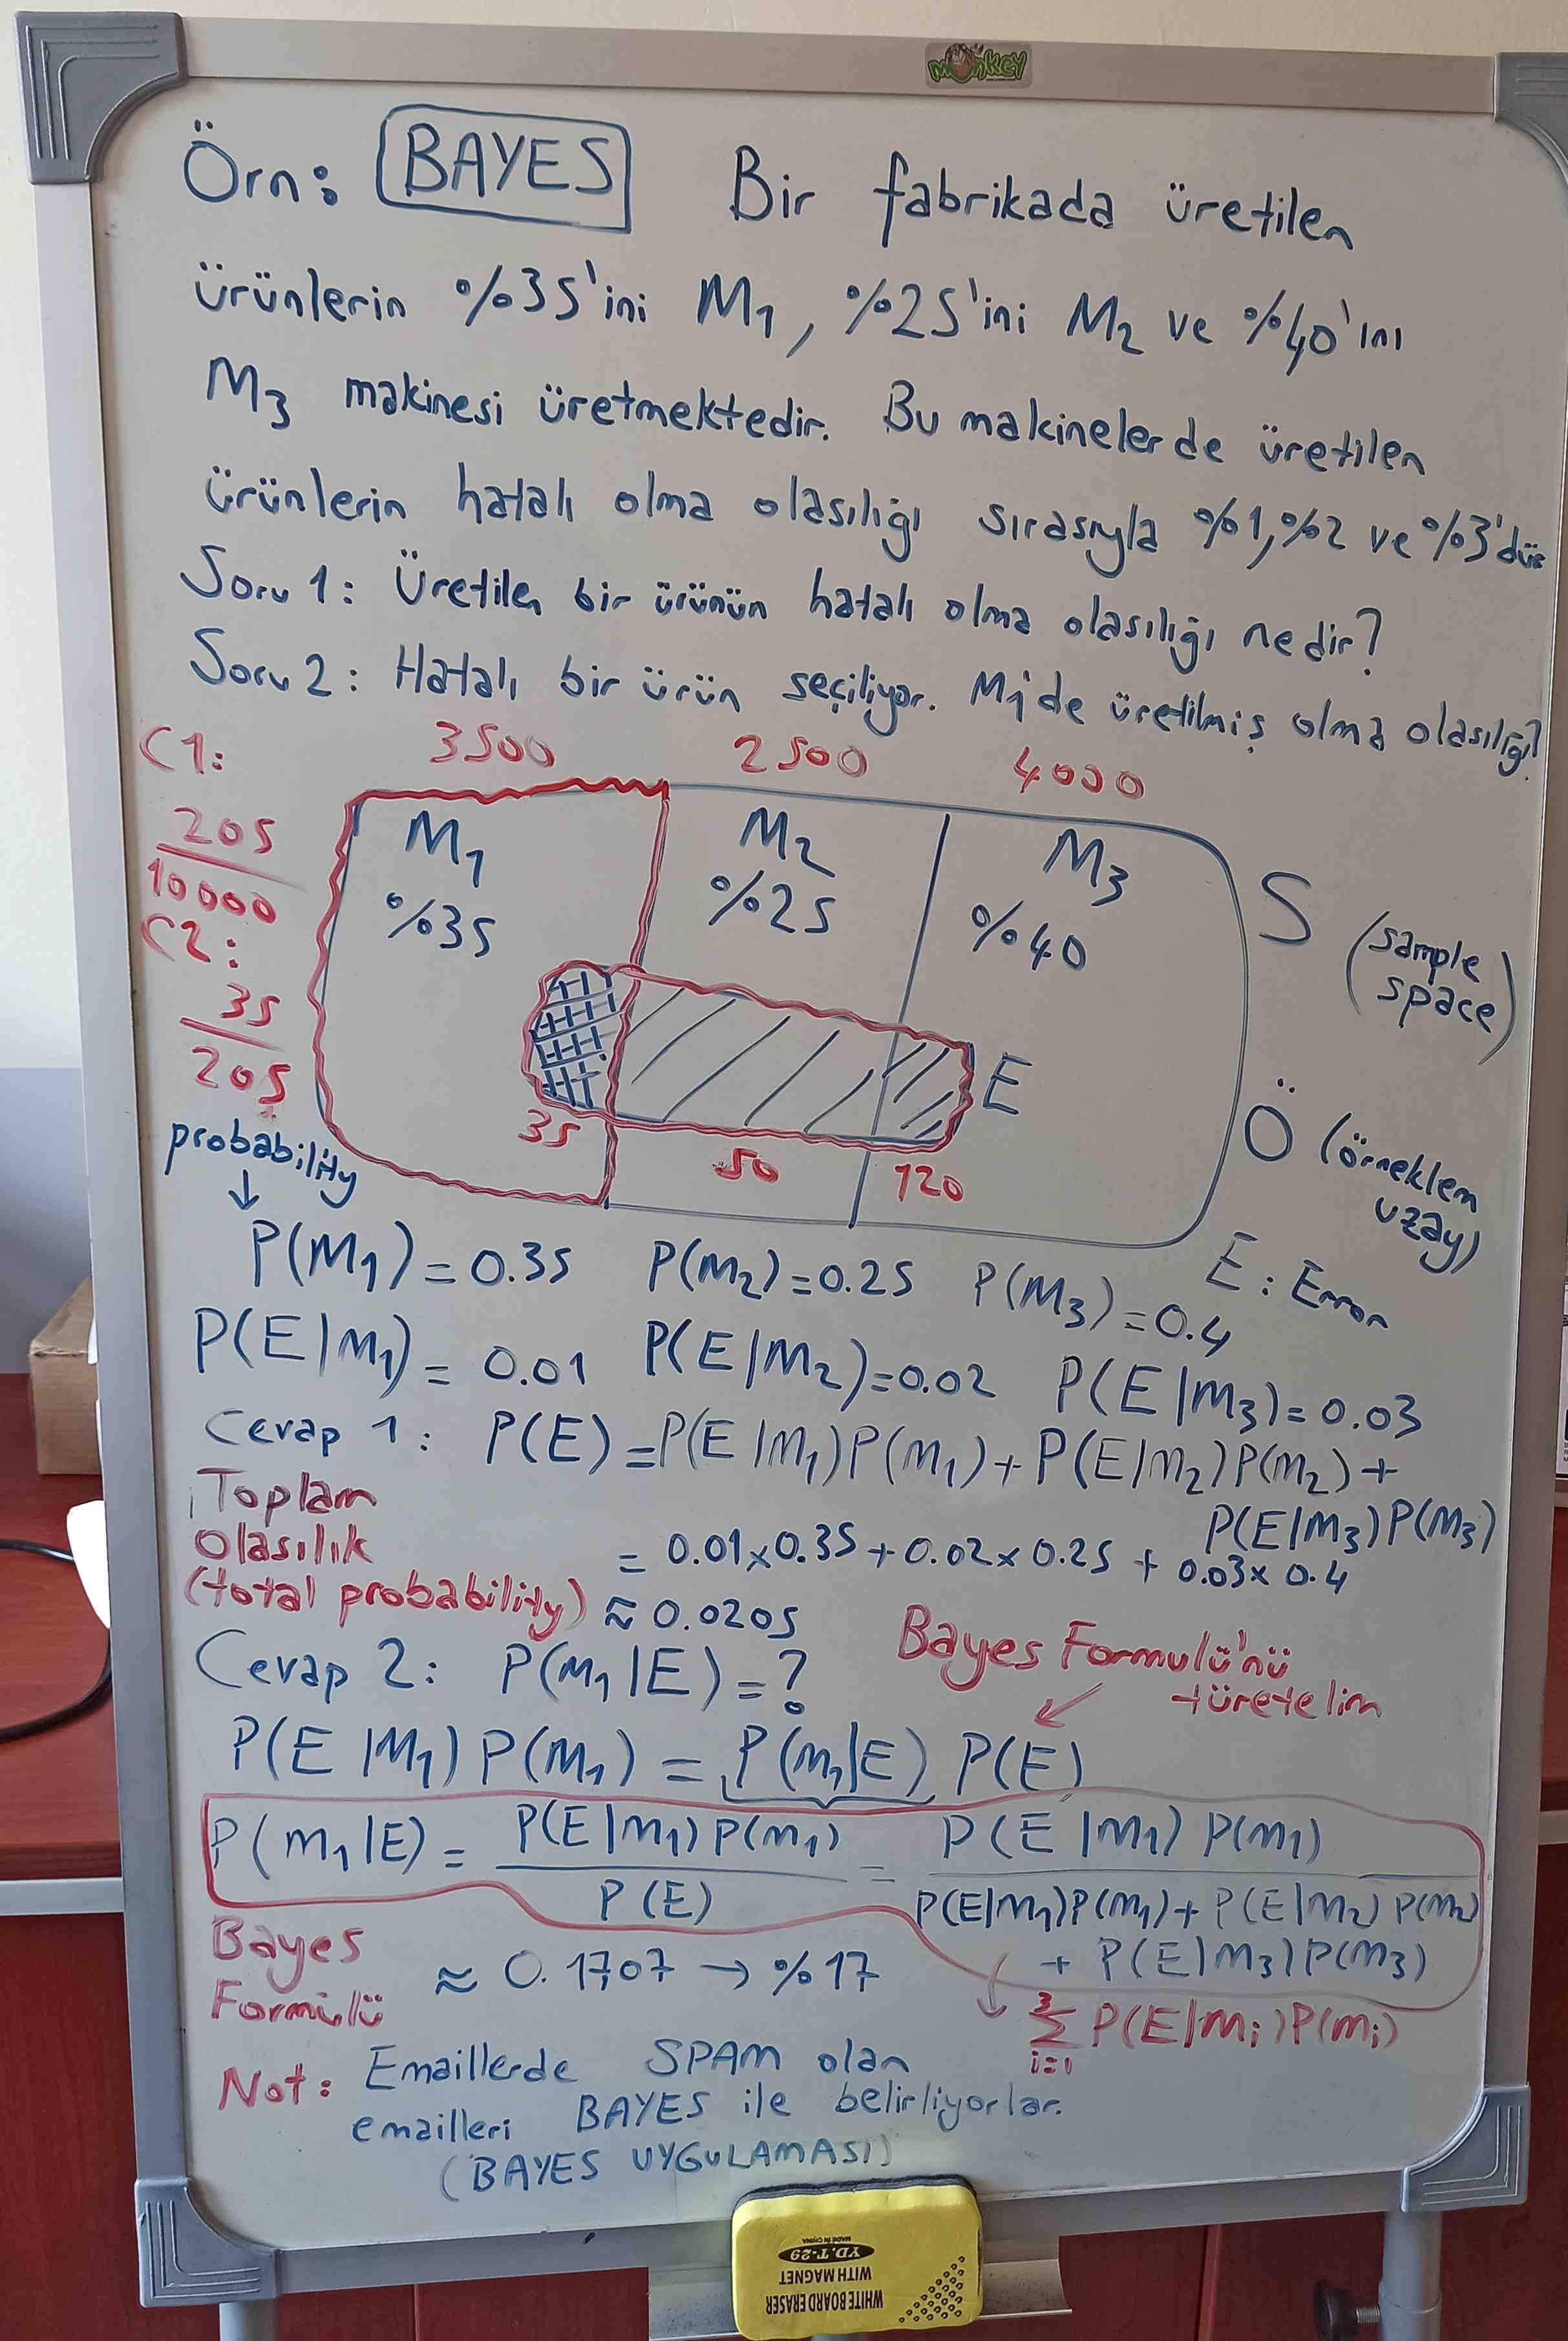 MonKEY
Örn: BAYES Bir fabrikada üretilen
ürünlerin %35'ini M1, %25'ini M2 ve %40'ını
M3 makinesi üretmektedir. Bu makinelerde üretilen
ürünlerin hatalı olma olasılığı sırasıyla %1, %2 ve %3'dür
Soru 1: Üretilen bir ürünün hatalı olma olasılığı nedir?
Soru 2: Hatalı bir ürün seçiliyor. M1'de üretilmiş olma olasılığı?
C1: 3500 2500 4000
205
10000
C2:
35
205
M1 M2 M3
%35 %25 %40
S (sample
space)
E
35 50 120
Ö (örneklem
uzay)
E: Error
probability
↓
P(M1) = 0.35 P(M2) = 0.25 P(M3) = 0.4
P(E|M1) = 0.01 P(E|M2) = 0.02 P(E|M3) = 0.03
Cevap 1: P(E) = P(E|M1)P(M1) + P(E|M2)P(M2) +
P(E|M3)P(M3)
Toplam
Olasılık
(total probability)
= 0.01 x 0.35 + 0.02 x 0.25 + 0.03 x 0.4
≈ 0.0205
Cevap 2: P(M1|E) = ?
Bayes Formulü'nü
türetelim
P(E|M1) P(M1) = P(M1|E) P(E)
P(M1|E) = P(E|M1) P(M1) / P(E) = P(E|M1) P(M1) / P(E|M1)P(M1) + P(E|M2) P(M2)
+ P(E|M3)P(M3)
Bayes
Formülü
≈ 0.1707 → %17
3 Σ i=1 P(E|Mi)P(Mi)
Not: Emaillerde SPAM olan
emailleri BAYES ile belirliyorlar.
(BAYES UYGULAMASI)
WHITE BOARD ERASER
WITH MAGNET
YD.T-29
MADE IN CHINA